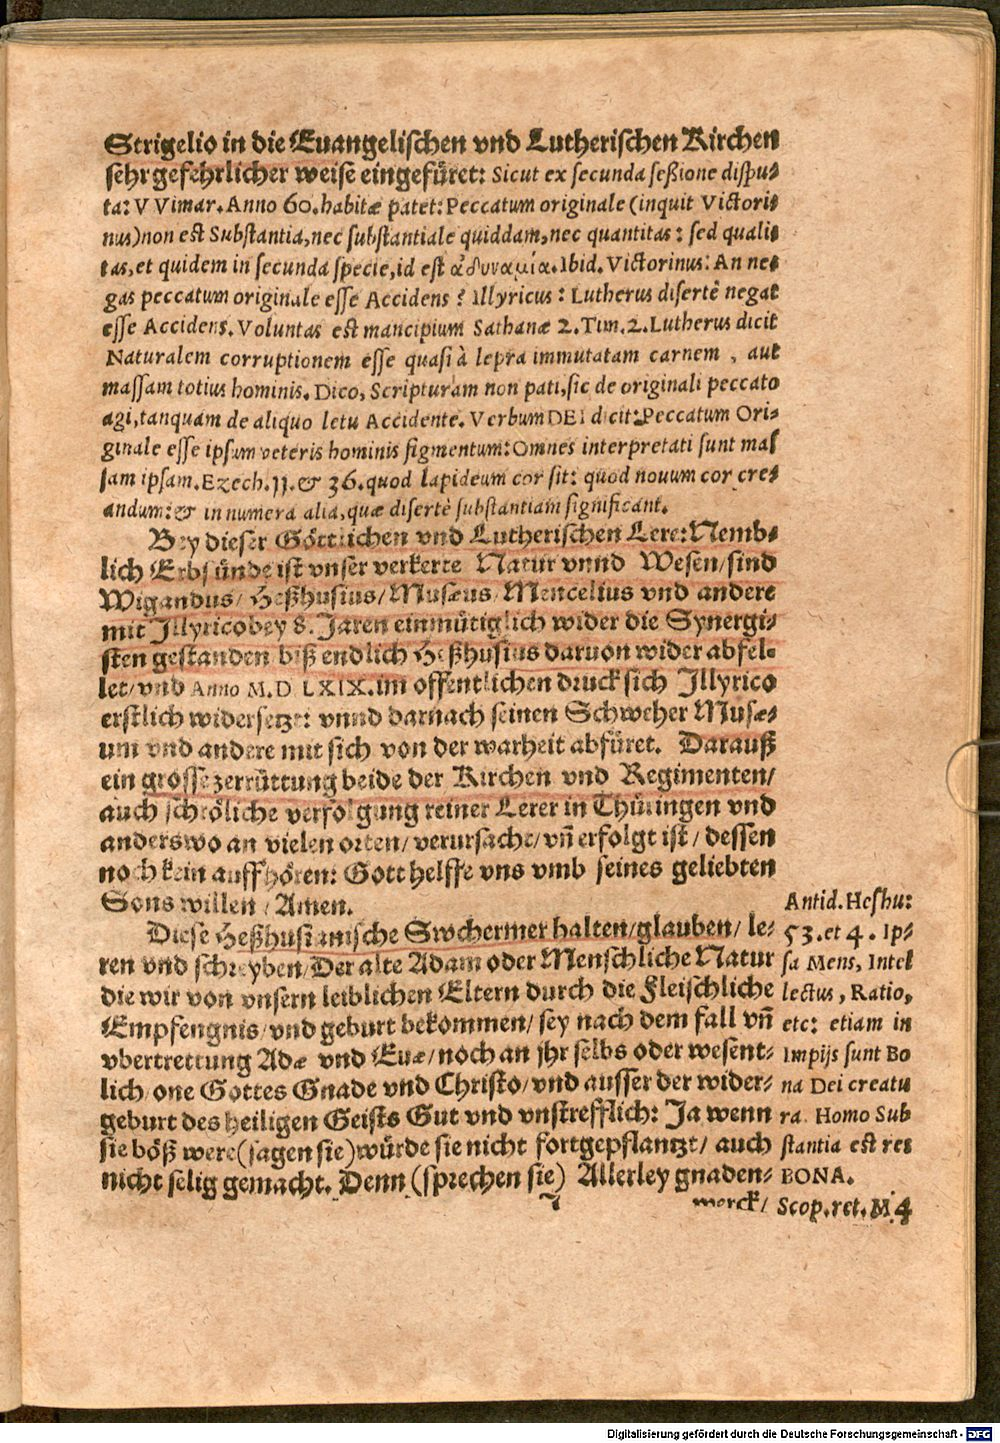 Strigelio in die Euangelischen vnd Lutherischen Kirchen
sehr gefehrlicher weise eingefüret: Sicut ex secunda seßione dispu-
ta: VVimar. Anno 60. habitæ patet: Peccatum originale (inquit Victori-
nus) non est Substantia, nec substantiale quiddam, nec quantitas: sed quali-
tas, et quidem in secunda specie, id est ἀδυναμία. Ibid. Victorinus: An ne-
gas peccatum originale esse Accidens? Illyricus: Lutherus disertè negat
esse Accidens. Voluntas est mancipium Sathanæ 2. Tim. 2. Lutherus dicit
Naturalem corruptionem esse quasi à lepra immutatam carnem, aut
massam totius hominis. Dico, Scripturam non pati, sic de originali peccato
agi, tanquam de aliquo letu Accidente. Verbum DEI dicit: Peccatum Ori-
ginale esse ipsum veteris hominis figmentum: Omnes interpretati sunt mas
sam ipsam. Ezech. 11. & 36. quod lapideum cor sit: quod nouum cor cre-
andum: & innumera alia, quæ disertè substantiam significant.
Bey dieser Göttlichen vnd Lutherischen Lere: Nemb-
lich Erbsünde ist vnser verkerte Natur vnnd Wesen/ sind
Wigandus/ Heßhusius/ Musæus/ Mencelius vnd andere
mit Illyrico bey 8. Jaren einmütiglich wider die Synergi-
sten gestanden biß endlich Heßhusius daruon wider abfel-
let/ vnd Anno M. D LXIX. im offentlichen druck sich Illyrico
erstlich widersetzt: vnnd darnach seinen Schweher Musæ-
um vnd andere mit sich von der warheit abfüret. Darauß
ein grosse zerrüttung beide der Kirchen vnd Regimenten/
auch schröliche verfolgung reiner Lerer in Thüringen vnd
anderswo an vielen orten/ verursacht/ vñ erfolgt ist/ dessen
noch kein auffhören: Gott helffe vns vmb seines geliebten
Sons willen/ Amen.
Diese Heßhusianische Swchermer halten/ glauben/ le-
ren vnd schreyben/ Der alte Adam oder Menschliche Natur
die wir von vnsern leiblichen Eltern durch die Fleischliche
Empfengnis/ vnd geburt bekommen/ sey nach dem fall vñ
vbertrettung Adæ vnd Euæ/ noch an jhr selbs oder wesent-
lich one Gottes Gnade vnd Christo/ vnd ausser der wider-
geburt des heiligen Geists Gut vnd vnstrefflich: Ja wenn
sie böß were (sagen sie) würde sie nicht fortgepflantzt/ auch
nicht selig gemacht. Denn (sprechen sie) Allerley gnaden-
merck/
Antid. Heshu:
53. et 4. Ip-
sa Mens, Intel
lectus, Ratio,
etc: etiam in
Impijs sunt Bo
na Dei creatu
ra. Homo Sub
stantia est res
BONA.
Scop. ret. M 4
Digitalisierung gefördert durch die Deutsche Forschungsgemeinschaft - DFG